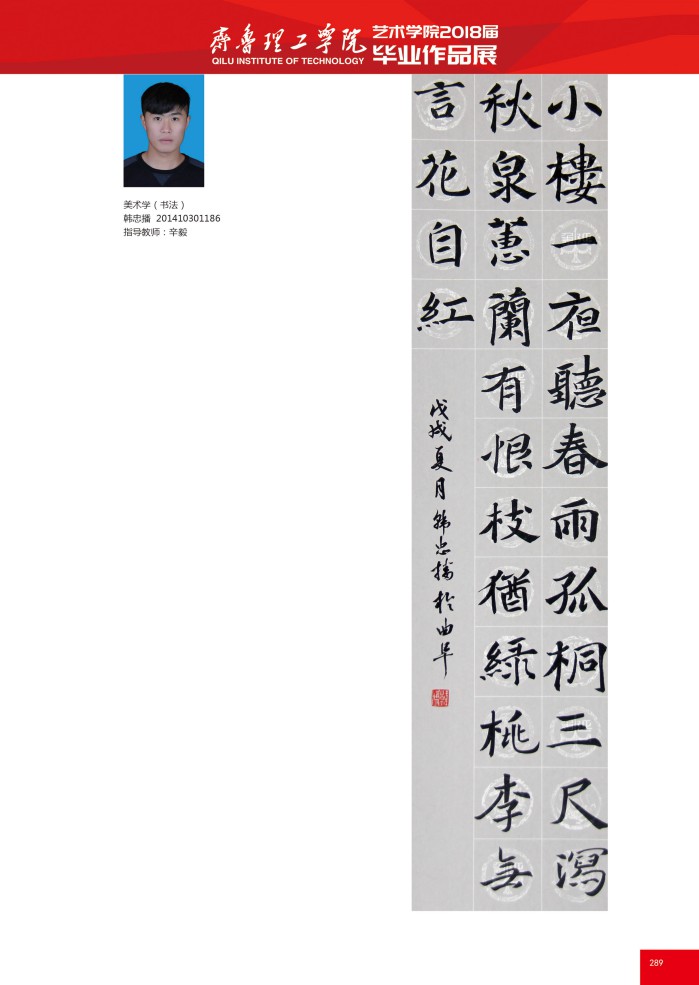 齊魯理工學院
QILU INSTITUTE OF TECHNOLOGY
艺术学院2018届
毕业作品展
美术学（书法）
韩忠播 201410301186
指导教师：辛毅
小樓一夜聽春雨孤桐三尺瀉
秋泉蕙蘭有恨枝猶綠桃李無
言花自紅
戊戌夏月韩忠播於曲阜
289